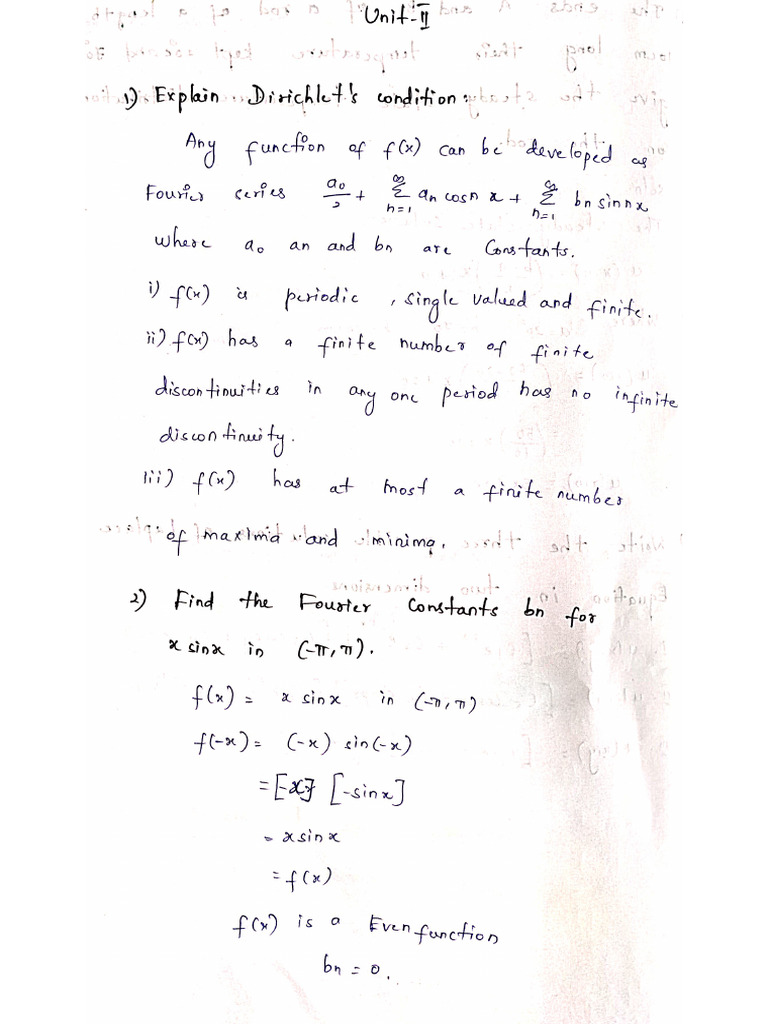 Unit-II
1) Explain Dirichlet's condition:
Any function of f(x) can be developed as
Fourier series a0/2 + ∞Σn=1 an cosn x + ∞Σn=1 bn sinnx
where a0 an and bn are Constants.
i) f(x) is periodic, single valued and finite.
ii) f(x) has a finite number of finite
discontinuities in any one period has no infinite
discontinuity.
iii) f(x) has at most a finite number
of maxima and minima.
2) Find the Fourier Constants bn for
x sinx in (-π, π).
f(x) = x sinx in (-π, π)
f(-x) = (-x) sin(-x)
= [-x] [-sinx]
= x sinx
= f(x)
f(x) is a Even function
bn = 0.